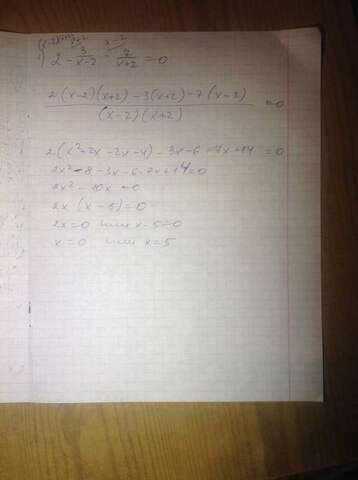 (x-2)(x+2) x+2 x-2
1) 2 - 3/(x-2) - 7/(x+2) = 0
2(x-2)(x+2) - 3(x+2) - 7(x-2) / (x-2)(x+2) = 0
2(x²+2x-2x-4) - 3x-6-7x+14=0
2x²-8-3x-6-7x+14=0
2x²-10x=0
2x(x-5)=0
2x=0 или x-5=0
x=0 или x=5